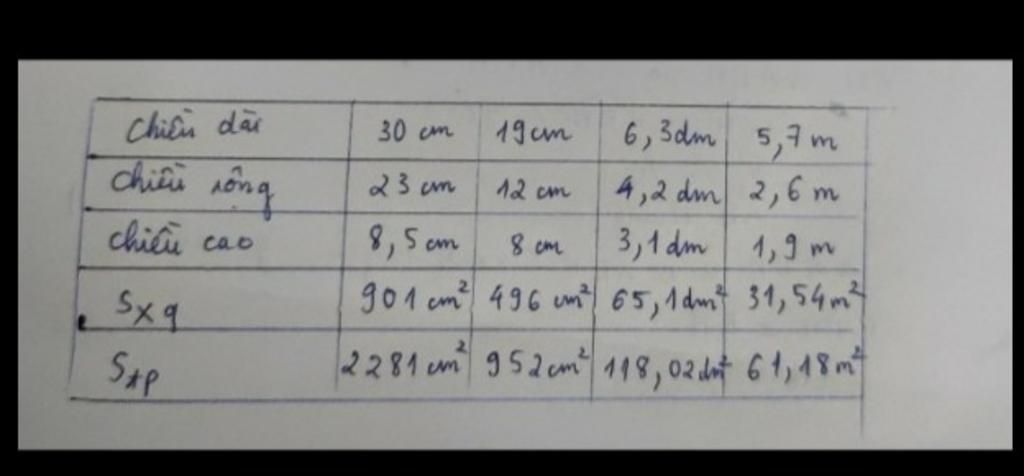 Chiều dài 30 cm 19cm 6,3dm 5,7 m
Chiều rộng 23 cm 12 cm 4,2 dm 2,6 m
Chiều cao 8,5cm 8 cm 3,1dm 1,9 m
Sxq 901 cm² 496 cm² 65,1dm² 31,54m²
Stp 2281 cm² 952cm² 118,02dm² 61,18m²